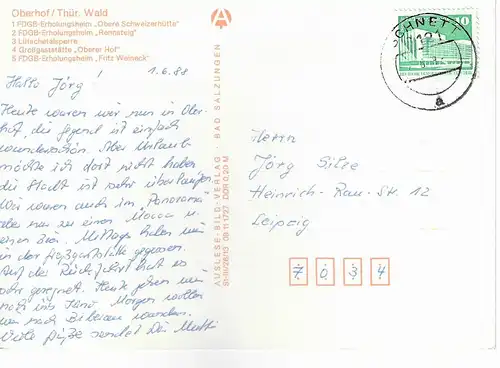 Oberhof/Thür. Wald
1 FDGB-Erholungsheim „Obere Schweizerhütte“
2 FDGB-Erholungsheim „Rennsteig“
3 Lütschetalsperre
4 Großgaststätte „Oberer Hof“
5 FDGB-Erholungsheim „Fritz Weineck“
1.6.88
Hallo Jörg!
Heute waren wir nun in Ober-
hof, die Gegend ist einfach
wunderschön. Aber Urlaub
möchte ich dort nicht haben
die Stadt ist sehr überlaufen.
Wir waren auch im „Panorama“
aber nur zu einen Mocca u.
einen Bier. Mittags haben wir
in der Großgaststätte gegessen.
Auf der Rückfahrt hat es
sehr geregnet. Heute gehen wir
noch ins Kino. Morgen wollen
wir nach wandern.
Viele Grüße sendet Dir Mutti
AUSLESE-BILD-VERLAG · BAD SALZUNGEN
DDR 0,20 M
SCHNETT
10
a
Herrn
Jörg
Heinrich-Rau-Str. 12
Leipzig
7 0 3 4